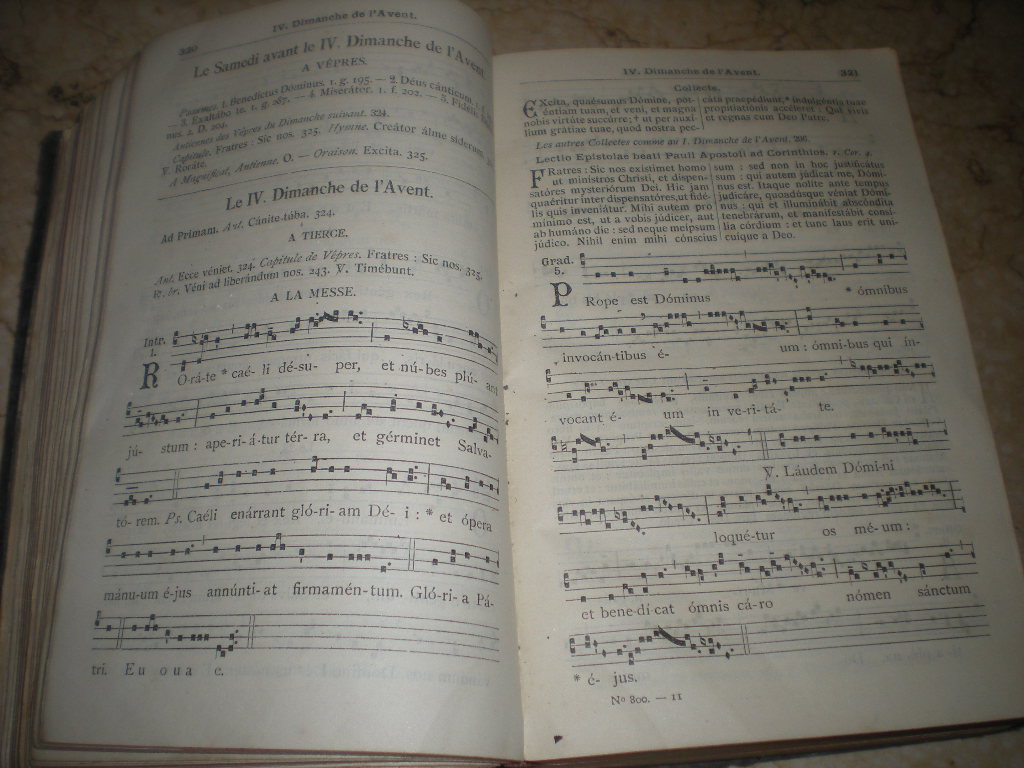 320
IV. Dimanche de l'Avent.
Le Samedi avant le IV. Dimanche de l'Avent.
A VÊPRES.
Psaumes. 1. Benedictus Dominus. 1. g. 195. — 2. Déus cánticum. 1. f.
— 3. Exaltábo te. 1. g. 287. — 4. Miserátor. 1. f. 202. — 5. Fidélis
nus. 2. D. 203.
Antiennes des Vêpres du Dimanche suivant. 324.
Capitule. Fratres : Sic nos. 325. Hymne. Creátor álme síderum
℣. Roráte.
A Magnificat, Antienne. O. — Oraison. Excita. 325.
Le IV. Dimanche de l'Avent.
Ad Primam. Ant. Cánite túba. 324.
A TIERCE.
Ant. Ecce véniet. 324. Capitule de Vêpres. Fratres : Sic nos. 325.
℟. br. Véni ad liberándum nos. 243. ℣. Timébunt.
A LA MESSE.
Intr.
1.
R O-rá-te * caé- li dé-su- per, et nú-bes plú- ant
jú- stum : ape-ri-á-tur tér-ra, et gérminet Salva-
tó-rem. Ps. Caéli enárrant gló-ri-am Dé- i : * et ópera
mánu-um é-jus annúnti-at firmamén-tum. Gló-ri-a Pá-
tri. E u o u a e.
IV. Dimanche de l'Avent.
321
Collecte.
EXcita, quaésumus Dómine, pot-
éntiam tuam, et veni, et magna
nobis virtúte succúrre; † ut per auxí-
lium grátiae tuae, quod nostra pec-
cáta praepédiunt, * indulgéntia tuae
propitiatiónis accéleret : Qui vivis
et regnas cum Deo Patre.
Les autres Collectes comme au I. Dimanche de l'Avent. 296.
Lectio Epistolae beati Pauli Apostoli ad Corinthios. 1. Cor. 4.
FRatres : Sic nos exístimet homo
ut minístros Christi, et dispen-
satóres mysteriórum Dei. Hic jam
quaéritur inter dispensatóres, ut fidé-
lis quis inveniátur. Mihi autem pro
mínimo est, ut a vobis júdicer, aut
ab humáno die : sed neque meípsum
júdico. Nihil enim mihi cónscius
sum : sed non in hoc justificátus
sum : qui autem júdicat me, Dómi-
nus est. Itaque nolíte ante tempus
judicáre, quoadúsque véniat Dómi-
nus : qui et illuminábit abscóndita
tenebrárum, et manifestábit consí-
lia córdium : et tunc laus erit uni-
cuíque a Deo.
Grad.
5.
P Rope est Dóminus * ómnibus
invocán-tibus é- um : ómni-bus qui ín-
vocant é- um in ve-ri-tá- te.
℣. Láudem Dómi-ni
loqué-tur os mé-um :
et bene-dí-cat ómnis cá-ro nómen sánctum
* é- jus.
Nº 800. — 11